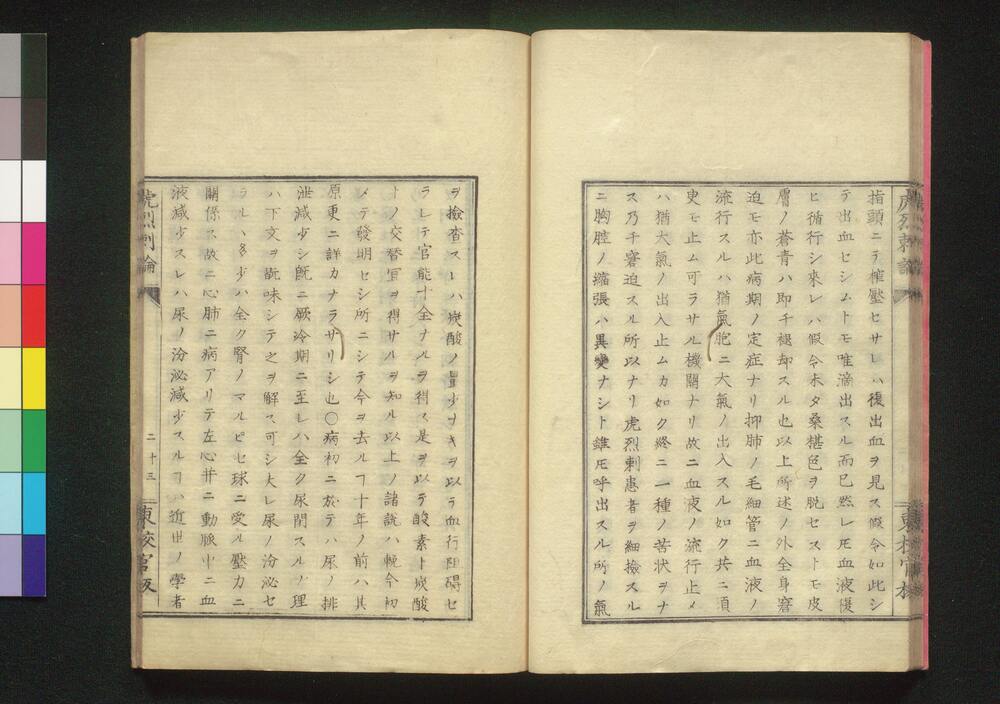 虎烈剌論
指頭ニテ榨壓セサレハ復出血ヲ見ス假令如此シ
テ出血セシムトモ唯滴出スル而已然レ𪜈血液復
ヒ循行シ來レハ假令未タ桑椹色ヲ脱セストモ皮
膚ノ蒼青ハ即チ褪却スル也以上所述ノ外全身窘
迫モ亦此病期ノ定症ナリ抑肺ノ毛細管ニ血液ノ
流行スルハ猶氣胞ニ大氣ノ出入スル如ク共ニ須
臾モ止ム可ラサル機關ナリ故ニ血液ノ流行止メ
ハ猶大氣ノ出入止ムカ如ク終ニ一種ノ苦状ヲナ
ス乃チ窘迫スル所以ナリ虎烈剌患者ヲ細撿スル
ニ胸腔ノ縮張ハ異變ナシト雖𪜈呼出スル所ノ氣
ヲ撿査スレハ炭酸ノ量少ヲキヲ以ラ血行阻碍セ
ラレテ官能十全ナルヲ得ス是ヲ以テ酸素ト炭酸
トノ交替宜ヲ得サルヲ知ル以上ノ諸説ハ輓今初
メテ發明セシ所ニシテ今ヲ去ルヿ十年ノ前ハ其
原更ニ詳カナラサリシ也〇病初ニ於テハ尿ノ排
泄減少シ既ニ厥冷期ニ至レハ全ク尿閉スルノ理
ハ下文ヲ翫味シテ之ヲ解ス可シ夫レ尿ノ汾泌セ
ラルヽ多少ハ全ク腎ノマルピセ球ニ受ル壓力ニ
關係ス故ニ心肺ニ病アリテ左心并ニ動脈中ニ血
液減少スレハ尿ノ汾泌減少スルヿハ近世ノ學者
虎烈剌論
二十三
東校官版